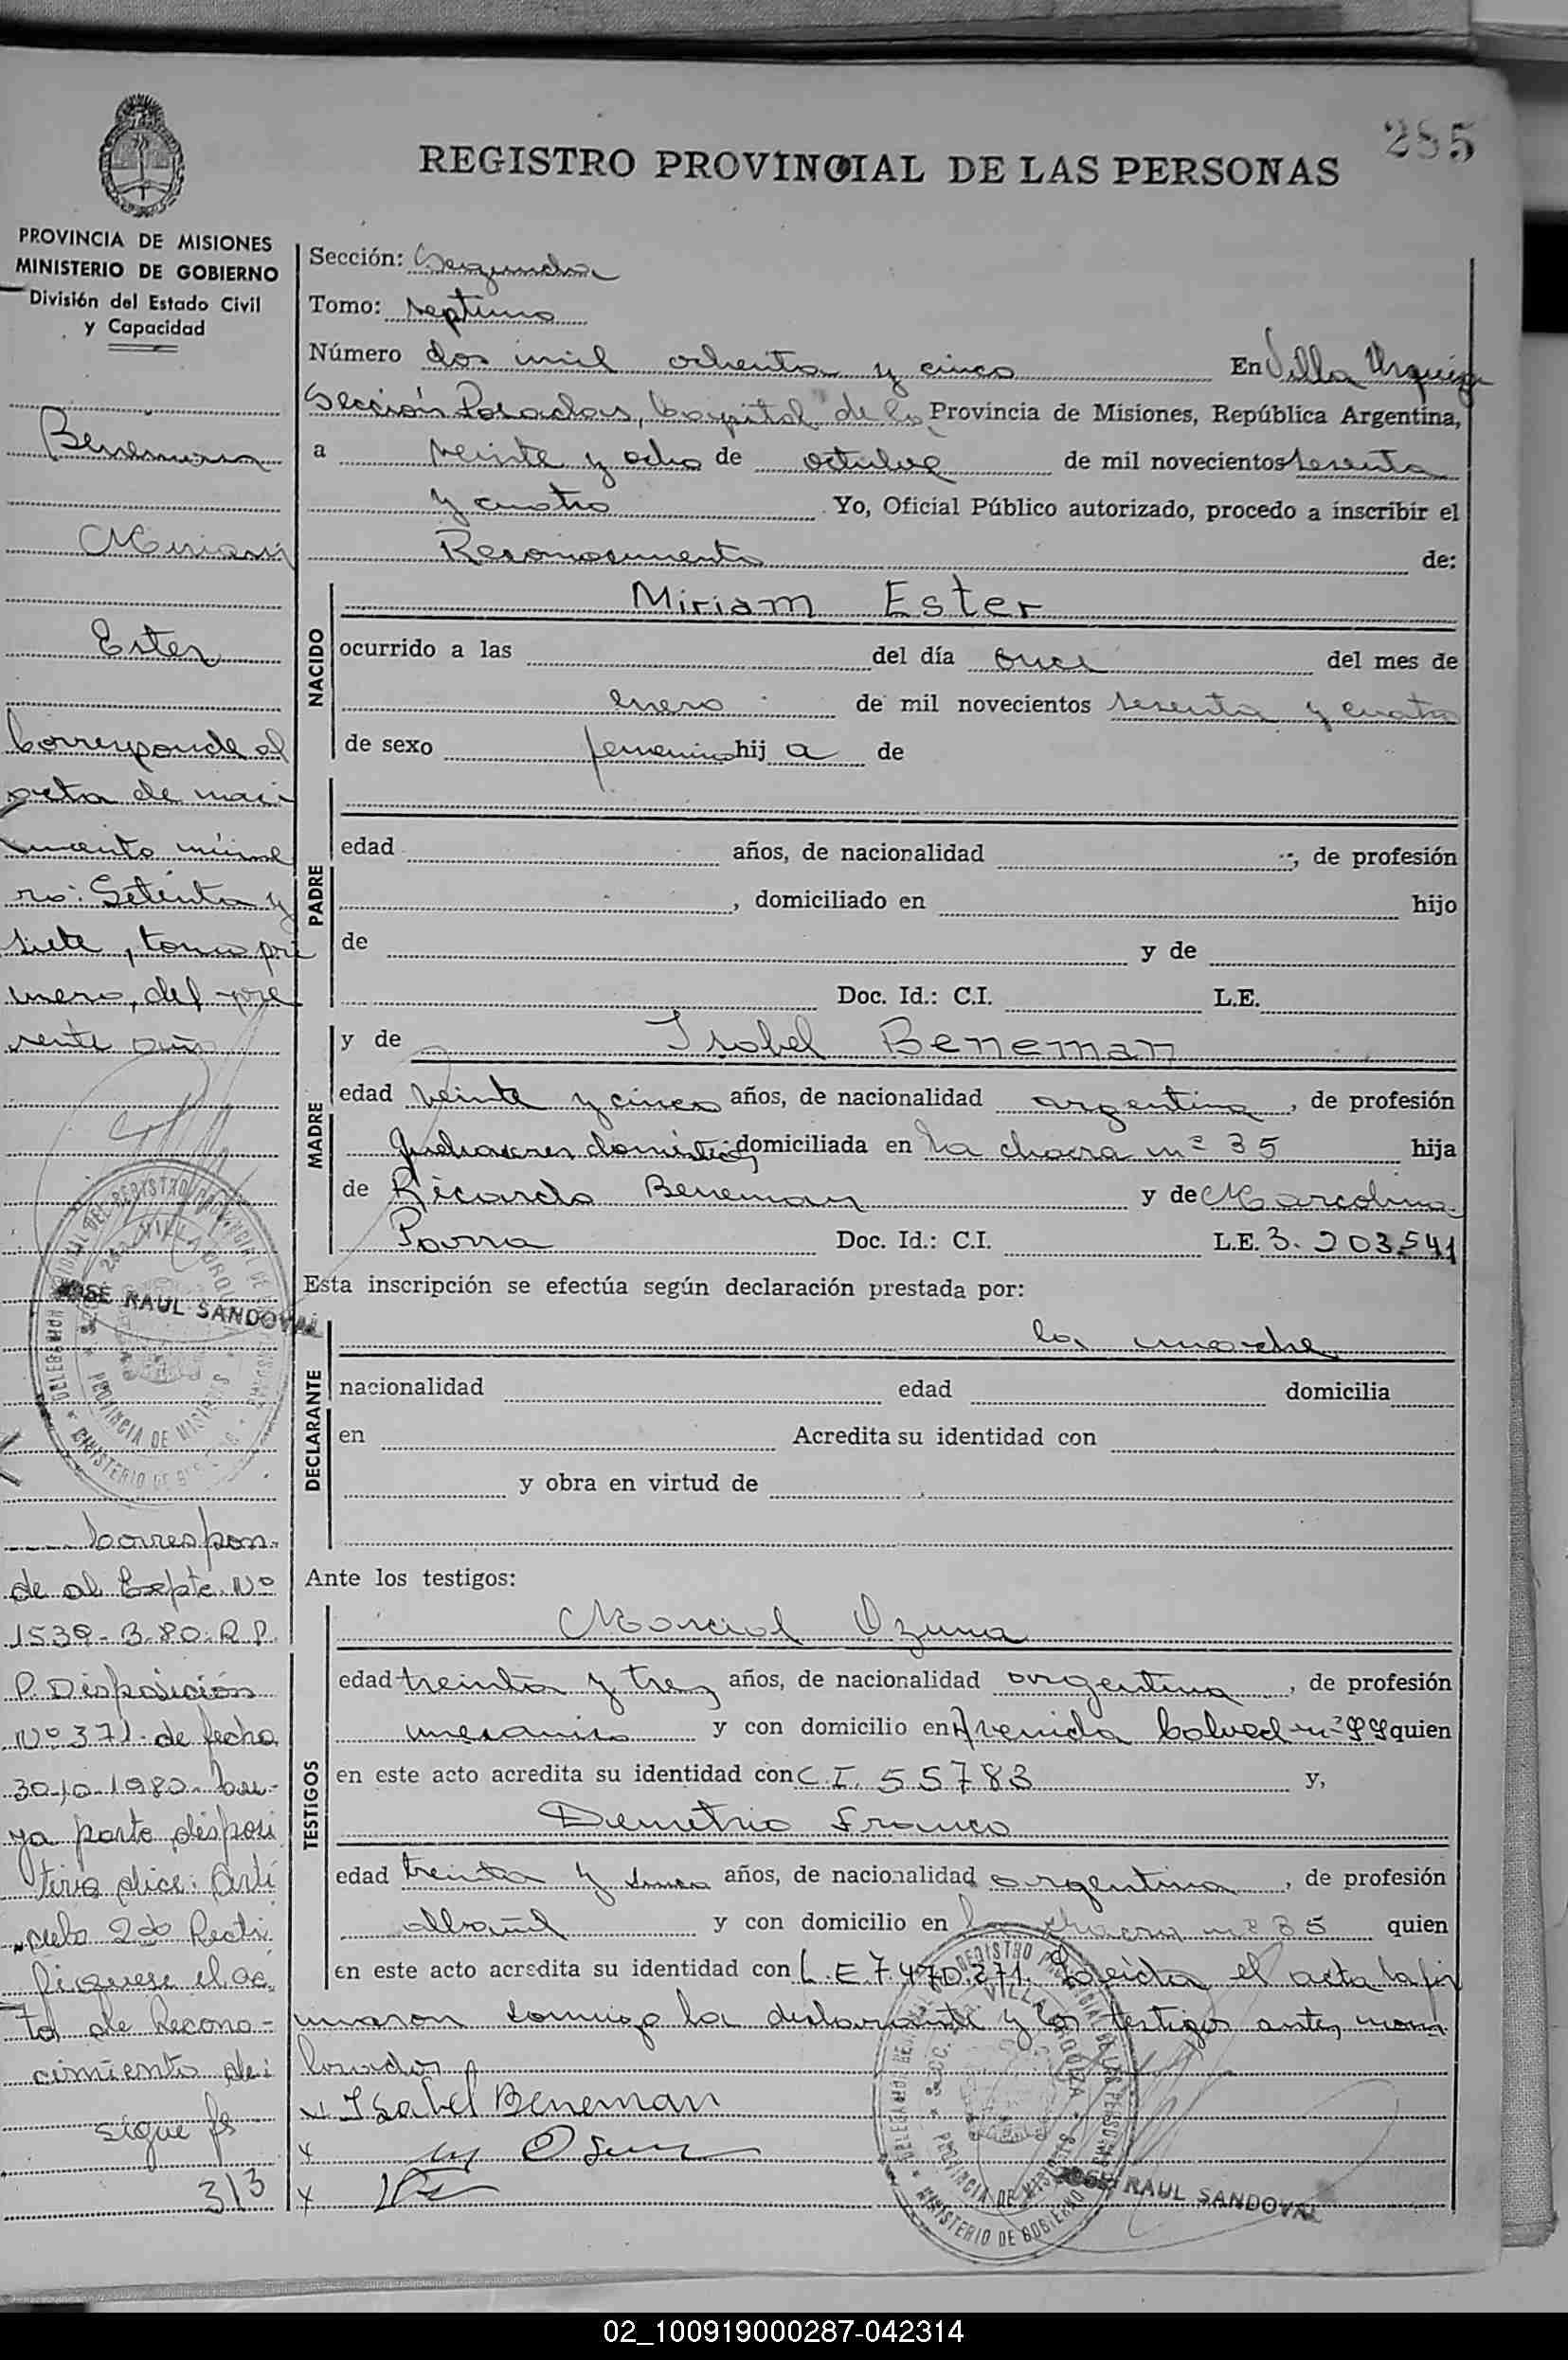 285
REGISTRO PROVINCIAL DE LAS PERSONAS
PROVINCIA DE MISIONES
MINISTERIO DE GOBIERNO
División del Estado Civil
y Capacidad
Beneman
Miriam
Ester
Corresponde al
acta de naci
miento núme
ro: Setenta y
siete, tomo pri
mero, del pre
sente año
JOSE RAUL SANDOVAL
Correspon-
de al Expte. Nº
1539-B.80.R.P.
P. Disposición
Nº 371. de fecha
30-10-1980- Cu-
ya parte disposi
tiva dice: Artí
culo 2do Recti
fiquese el ac
ta de recono-
cimiento de:
sigue fs
313
Sección: Segunda
Tomo: septimo
Número dos mil ochenta y cinco En Villa Urquiza
Sección Posadas, Capital de la Provincia de Misiones, República Argentina,
a veinte y ocho de octubre de mil novecientos sesenta
y cuatro Yo, Oficial Público autorizado, procedo a inscribir el
Reconocimiento de:
NACIDO
Miriam Ester
ocurrido a las del día once del mes de
enero de mil novecientos sesenta y cuatro
de sexo femenino hij a de
PADRE
edad años, de nacionalidad , de profesión
, domiciliado en hijo
de y de
Doc. Id.: C.I. L.E.
MADRE
y de Isabel Beneman
edad veinte y cinco años, de nacionalidad argentina, de profesión
quehaceres domésticos domiciliada en La chacra nº 35 hija
de Ricardo Beneman y de Marcolina
Doc. Id.: C.I. L.E. 3.203.541
Esta inscripción se efectúa según declaración prestada por:
DECLARANTE
la madre
nacionalidad edad domicilia
en Acredita su identidad con
y obra en virtud de
Ante los testigos:
TESTIGOS
Marcial Ozuna
edad treinta y tres años, de nacionalidad argentina, de profesión
mecanico y con domicilio en Avenida nº 99 quien
en este acto acredita su identidad con C.I. 55783 y,
Demetrio Franco
edad treinta y cinco años, de nacionalidad argentina, de profesión
albañil y con domicilio en la chacra nº 35 quien
en este acto acredita su identidad con L.E 7.470.271. Leída el acta la fir
maron conmigo la declarante y los testigos antes men
cionados
x Isabel Beneman
x
x
JOSE RAUL SANDOVAL
DELEGACION SECCIONAL DEL REGISTRO PROVINCIAL DE LAS PERSONAS
VILLA URQUIZA
PROVINCIA DE MISIONES
MINISTERIO DE GOBIERNO
02_100919000287-042314